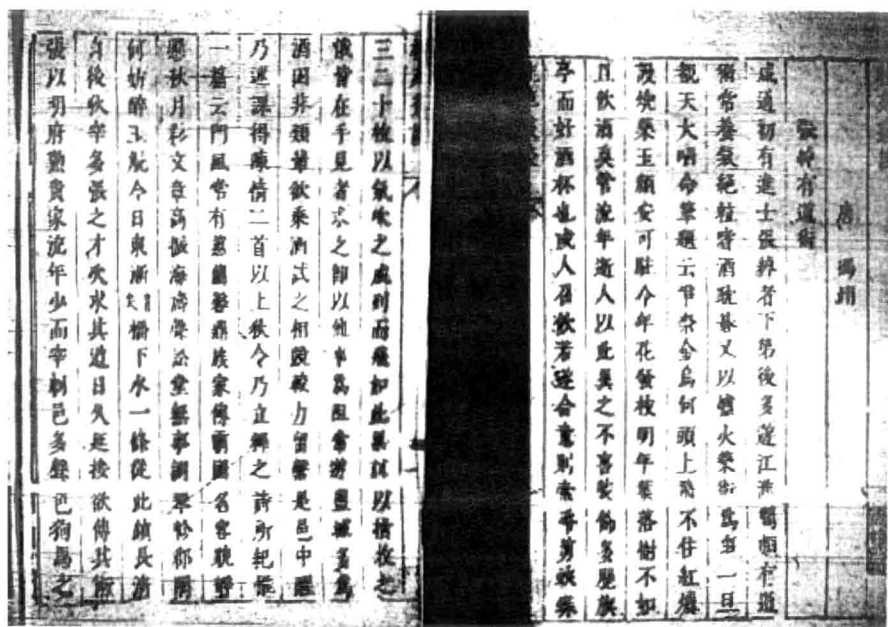 唐 馮翊
張綽有道術
咸通初有進士張綽者下第後多遊江淮間頗有道
術常養氣絕粒嗜酒耽棊又以爐火藥術為事一旦
觀天大哂命筆題云爭奈金烏何頭上飛不住紅爐
謾燒藥玉顏安可駐今年花發枝明年葉落樹不如
且飲酒莫管流年逝人以此異之不喜裝飾多歷旗
亭而好酒杯也或人召飲若遂合意則索剪蛺蝶
三二十枚以氣吹之成列而飛如此累刻以指收之
俄皆在手見者求之即以他事為阻常遊鹽城多為
酒困非類輩欲乘酒試之相競較力留繫是邑中醒
乃述課得陳情二首以上狄令乃立釋之詩所紀惟
一篇云門風常有蕙蘭馨鼎族家傳霸國名容貌靜
懸秋月彩文章高振海濤聲訟堂無事調琴軫郡閣
何妨醉玉觥今日東漸橋下水一條從此鎮長清
自後狄宰多張之才次求其道日久延接欲傳其術
張以明府勳貴家流年少而宰劇邑多聲色狗馬之